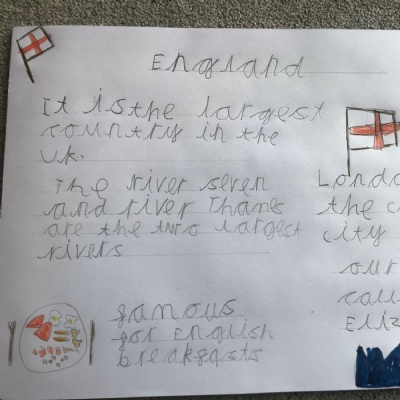 England
It is the largest
country in the
UK.
The river seven
and river Thames
are the two largest
rivers
famous
for English
breakfasts
Londo
the c
city
our
call
Eliz